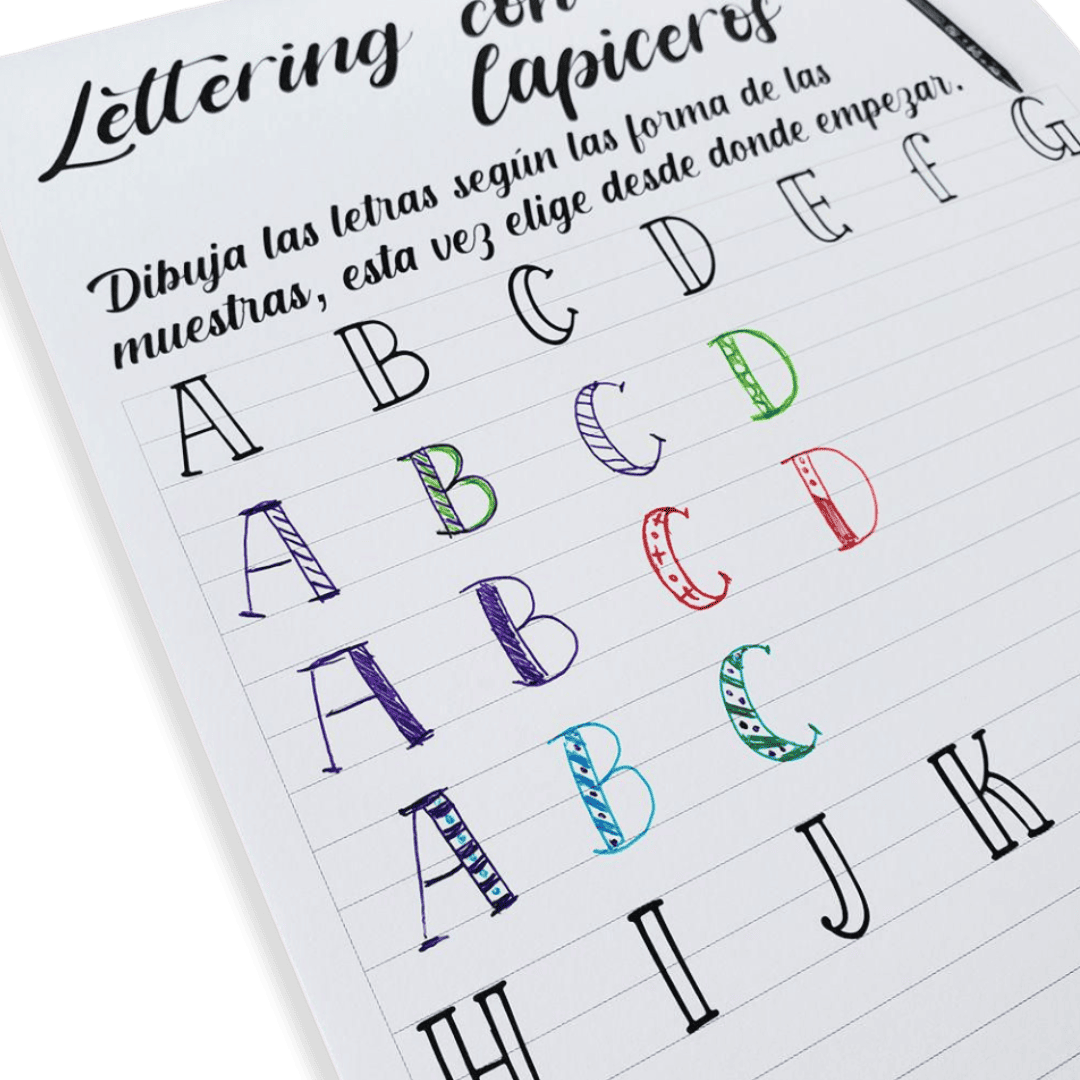 Lettering con
lapiceros
Dibuja las letras según las forma de las
muestras, esta vez elige desde donde empezar.
A B C D E f G
A B C D
A B C D
A B C
H I J K